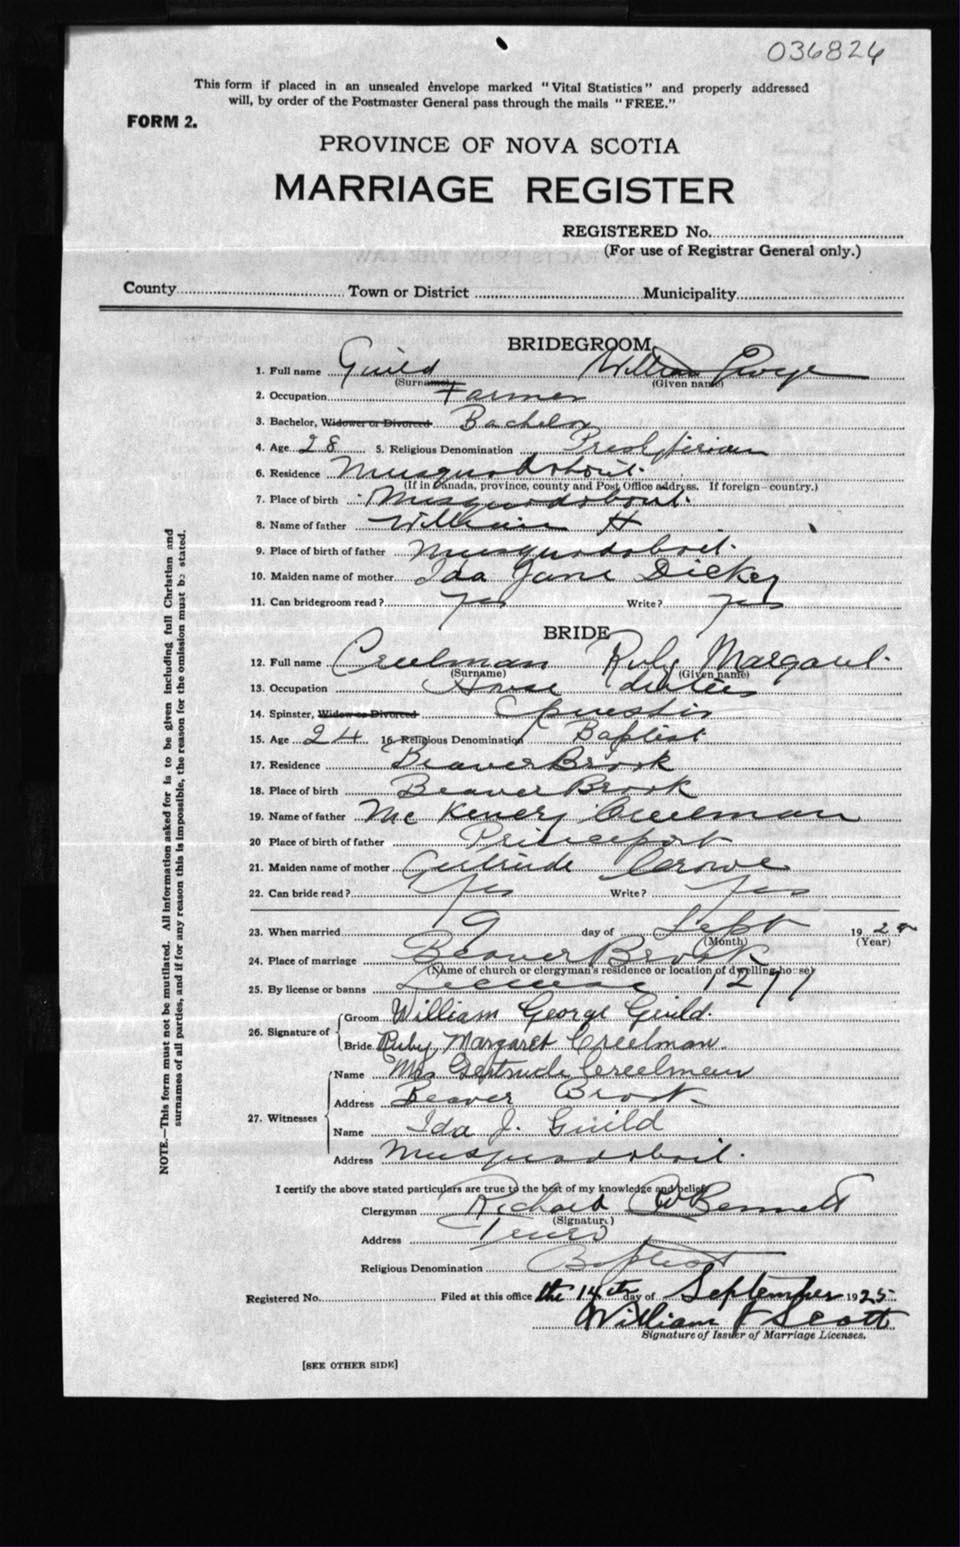 036826
This form if placed in an unsealed envelope marked "Vital Statistics" and properly addressed
will, by order of the Postmaster General pass through the mails "FREE."
FORM 2.
PROVINCE OF NOVA SCOTIA
MARRIAGE REGISTER
REGISTERED No.
(For use of Registrar General only.)
County Town or District Municipality
BRIDEGROOM
1. Full name Guild William George
(Surname) (Given name)
2. Occupation Farmer
3. Bachelor, Widower or Divorced Bachelor
4. Age 28 5. Religious Denomination Presbyterian
6. Residence Musquodoboit.
(If in Canada, province, county and Post Office address. If foreign—country.)
7. Place of birth Musquodoboit.
8. Name of father William H
9. Place of birth of father Musquodoboit.
10. Maiden name of mother Ida Jane Dickey
11. Can bridegroom read? Yes Write? Yes
BRIDE
12. Full name Creelman Ruby Margaret.
(Surname) (Given name)
13. Occupation House duties
14. Spinster, Widow or Divorced
15. Age 24 16. Religious Denomination Baptist
17. Residence Beaver Brook
18. Place of birth Beaver Brook
19. Name of father Mc Creelman
20 Place of birth of father Princeport
21. Maiden name of mother Gertrude Crowe
22. Can bride read? Yes Write? Yes
23. When married 9 day of Sept 19
(Month) (Year)
24. Place of marriage Beaver Brook
(Name of church or clergyman's residence or location of dwelling house)
25. By license or banns License
26. Signature of Groom William George Guild.
Bride Ruby Margaret Creelman.
27. Witnesses Name Mrs Gertrude Creelman
Address Beaver Brook
Name Ida J. Guild
Address Musquodoboit.
I certify the above stated particulars are true to the best of my knowledge and belief
Clergyman Richard Bennett
(Signature)
Address Truro
Religious Denomination Baptist
Registered No. Filed at this office the 14th day of September 1925
William Scott
Signature of Issuer of Marriage Licenses.
[SEE OTHER SIDE]
NOTE.—This form must not be mutilated. All information asked for is to be given including full Christian and
surnames of all parties, and if for any reason this is impossible, the reason for the omission must be stated.